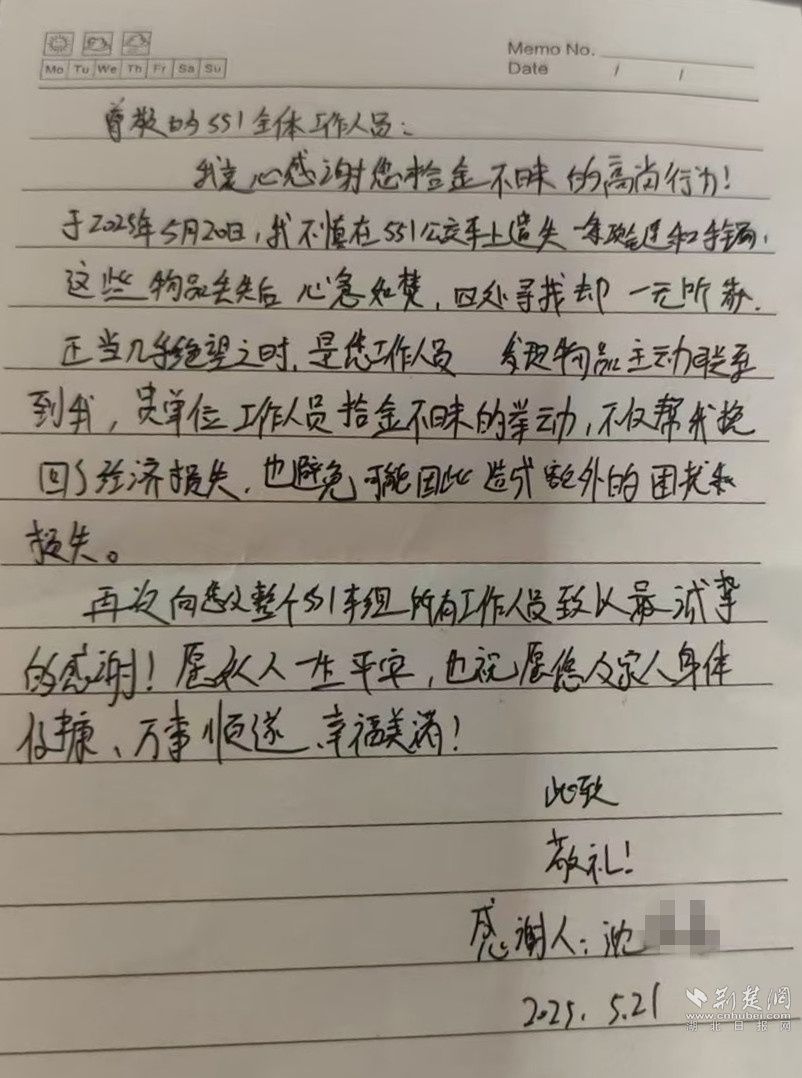 Memo No.
Mo Tu We Th Fr Sa Su
Date / /
尊敬的551全体工作人员：
我衷心感谢您拾金不昧的高尚行为！
于2025年5月20日，我不慎在551公交车上遗失一条项链和手镯，
这些物品丢失后 心急如焚，四处寻找却一无所获.
正当几乎绝望之时，是您工作人员 发现物品主动联系
到我，贵单位工作人员拾金不昧的举动，不仅帮我挽
回了经济损失，也避免可能因此造成额外的困扰和
损失。
再次向您及整个551车组所有工作人员致以最诚挚
的感谢！愿好人一生平安，也祝愿您及家人身体
健康、万事顺遂、幸福美满！
此致
敬礼！
感谢人：沈
2025.5.21
荆楚网
www.cnhubei.com
湖北日报网